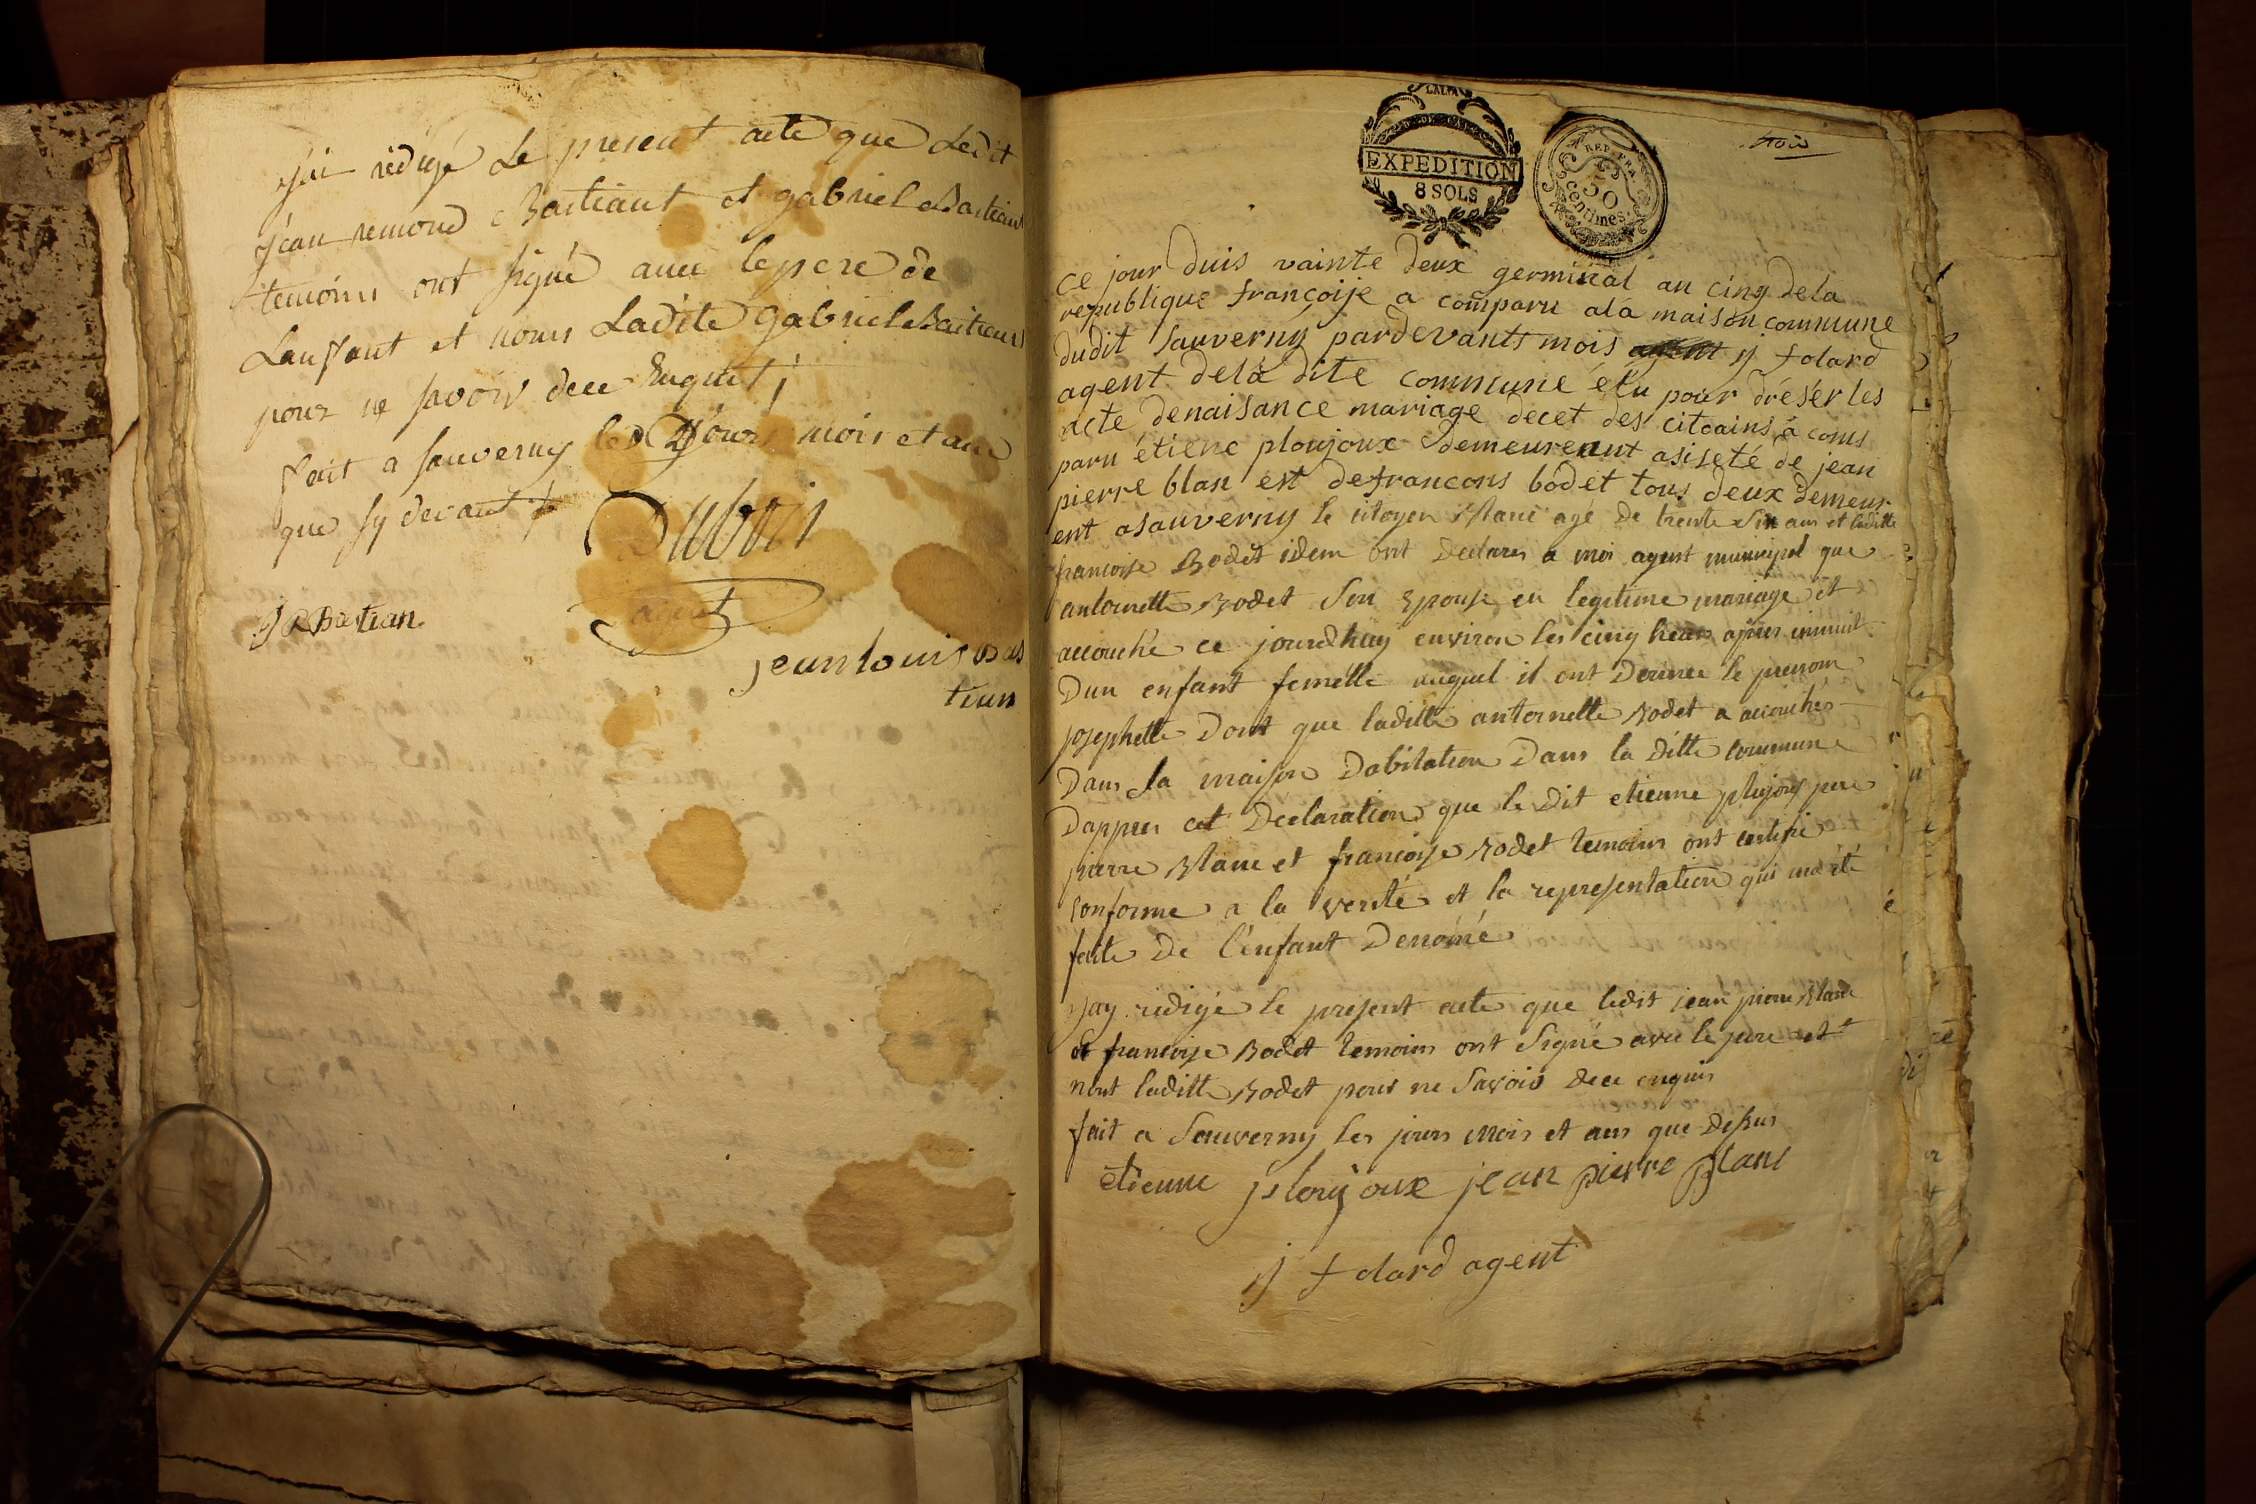 j'ai rédigé Le present acte que Ledit
jean remond Bastiant et gabriel Bastiant
temoins ont signé avec le pere de
Lanfant et nonts Ladite gabriel Bastiant
pour ne savoir dece Enquit
fait a sauverny les jours mois et an
que sy devant
Dubois
agent
J R Bastian
jean louis Bas
tian
EXPEDITION
8 SOLS
REP. FRA.
50
centimes.
trois
ce jour duis vainte deux germinal an cinq dela
republique françoise a comparu ala maison commune
dudit sauverny pardevants mois agent jj folard
agent dela dite commune élu pour drésér les
acte denaisance mariage decet des citoains a coms
paru étiene ploujoux demeureant asiseté de jean
pierre blan est defrancons bodet tous deux demeur
ent asauverny le citoyen Blanc agé de trente six ans et laditte
francoise Bodet idem ont Declarés a moi agent municipal que
antoinette Bodet son Epouse en legitime mariage et
accouché ce jourdhuy environ les cinq heurs apres minuit
Dun enfant femélle auquel il ont Donnee le prenom
josephette Dont que laditte antoinette Bodet a accouchés
Dans la maison Dabitation Dans la ditte commune
Dappres cet Declaration que le Dit etienne plujoux pere
pierre Blanc et francoise Bodet temoins ont certifié
conforme a la verité et la representation qui ma été
faite De l'enfant Denomé
Jay rédigé le present acte que ledit jean pierre Blanc
et francoise Bodet temoins ont Signé avec le pere et
nont laditte Bodet pour ne Savois dece enquis
fait a Sauverny les jours mois et ans que Dessus
etienne plonjoux jean pierre Blanc
jj folard agent